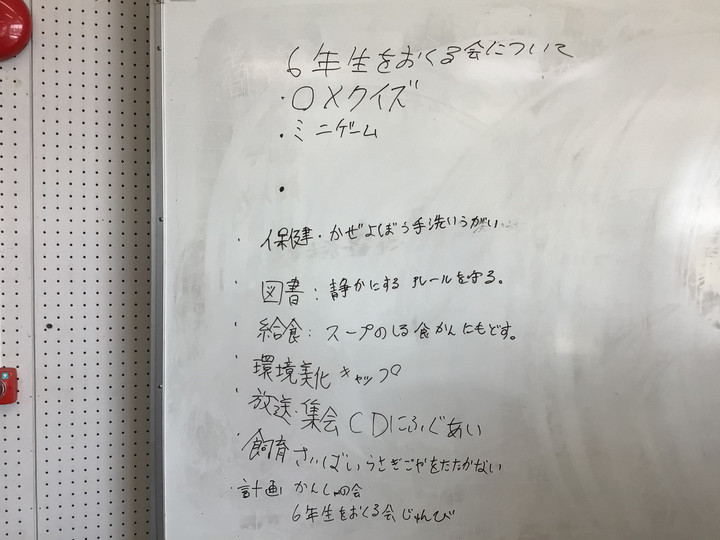 6年生をおくる会について
・○×クイズ
・ミニゲーム
・
・保健・かぜよぼう手洗いうがい
図書：静かにする ルールを守る。
・給食：スープのしる食かんにもどす。
・環境美化 キャップ
・放送・集会 CDにふぐあい
・飼育 さいばい うさぎごやをたたかない
・計画 かんしゃの会
6年生をおくる会じゅんび